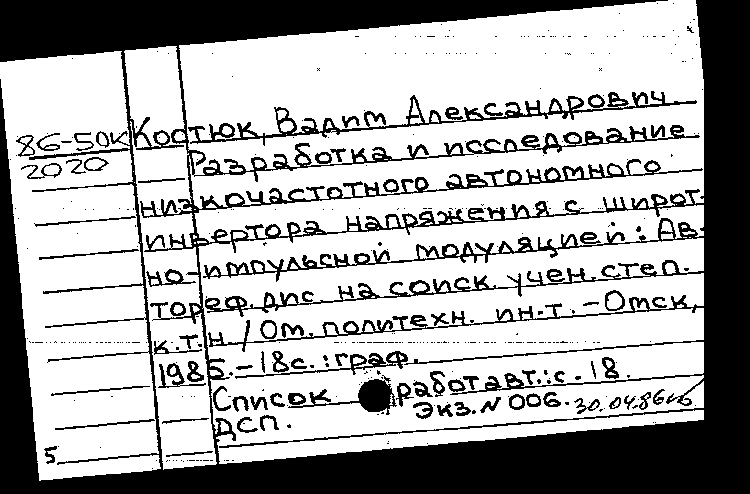 86-50К Костюк, Вадим Александрович.
2020 Разработка и исследование
низкочастотного автономного
инвертора напряжения с широт-
но-импульсной модуляцией: Ав-
тореф. дис. на соиск. учен. степ.
к.т.н / Ом. политехн. ин-т. - Омск,
1985. - 18 с. : граф.
Список работ авт.: с. 18.
Экз. N 006. 30.04.86
ДСП.
5